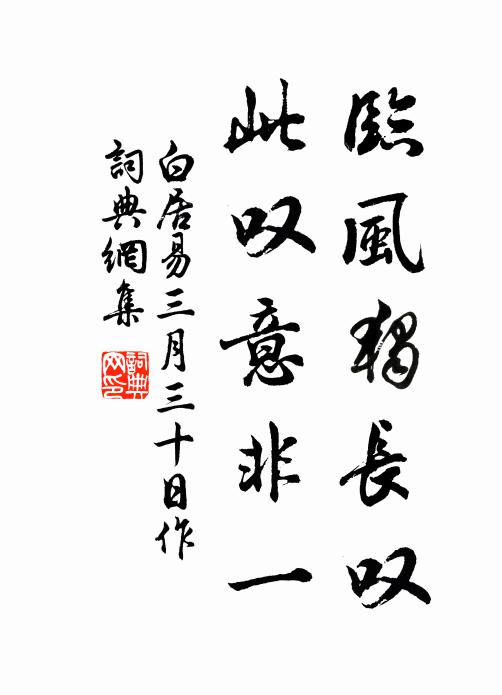 臨風獨長叹
此叹意非一
白居易三月三十日作
詞典網集
詞典网印